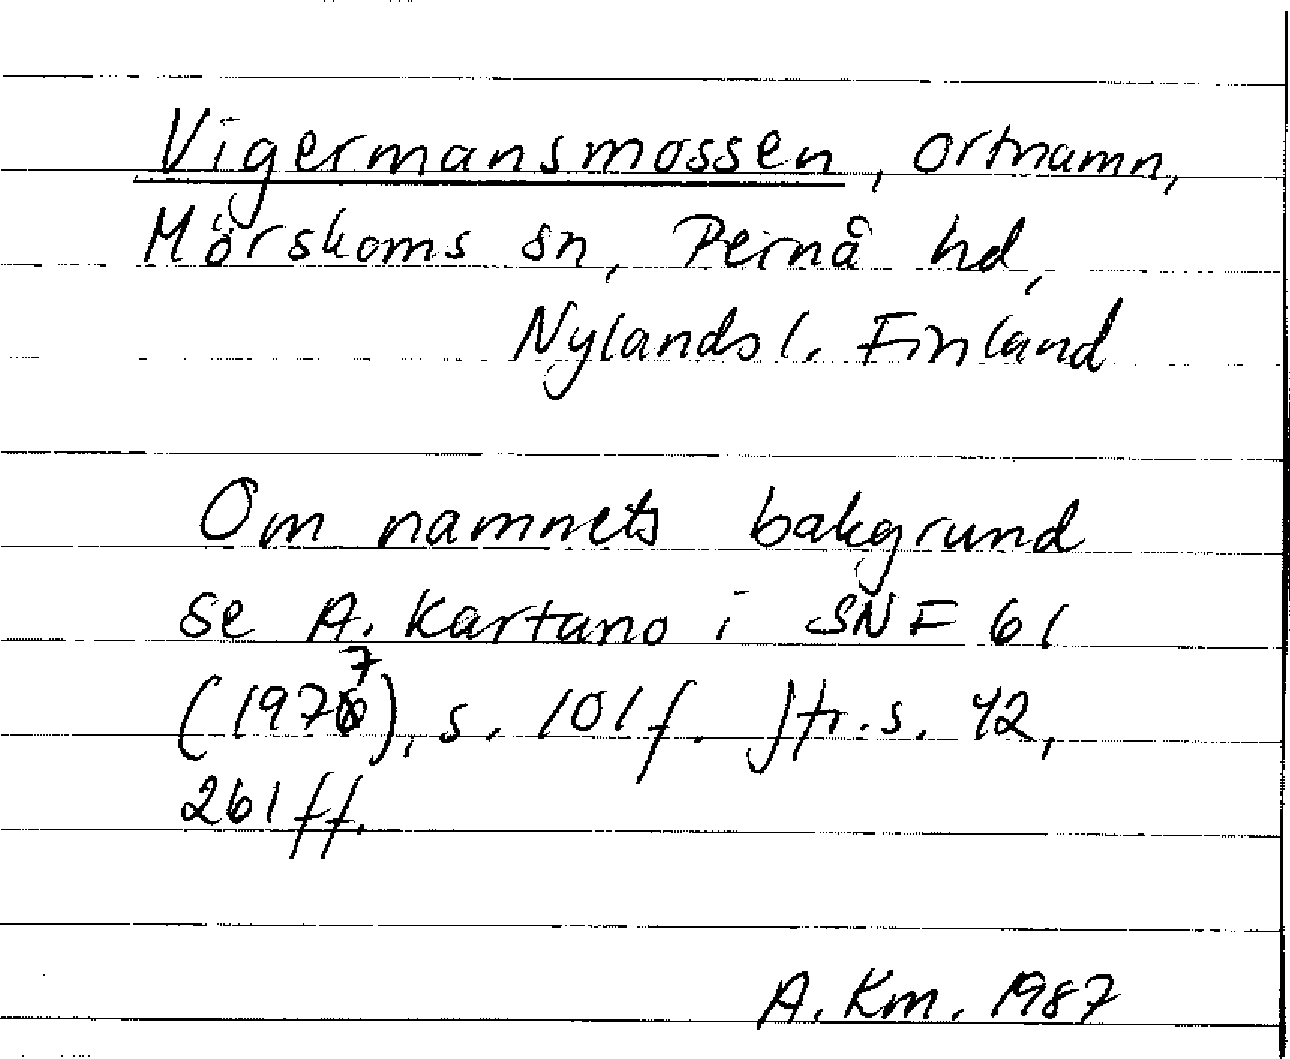 Vigermansmossen, ortnamn,
Mörskoms sn, Pernå hd,
Nylands l. Finland
Om namnets bakgrund
se A. Kartano i SNF 61
(1977), s. 101 f. Jfr. s. 42,
261 ff.
A. Km. 1987